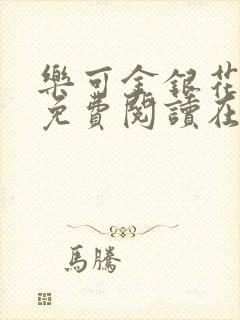 樂可金銀花
免費閱讀在
馬騰